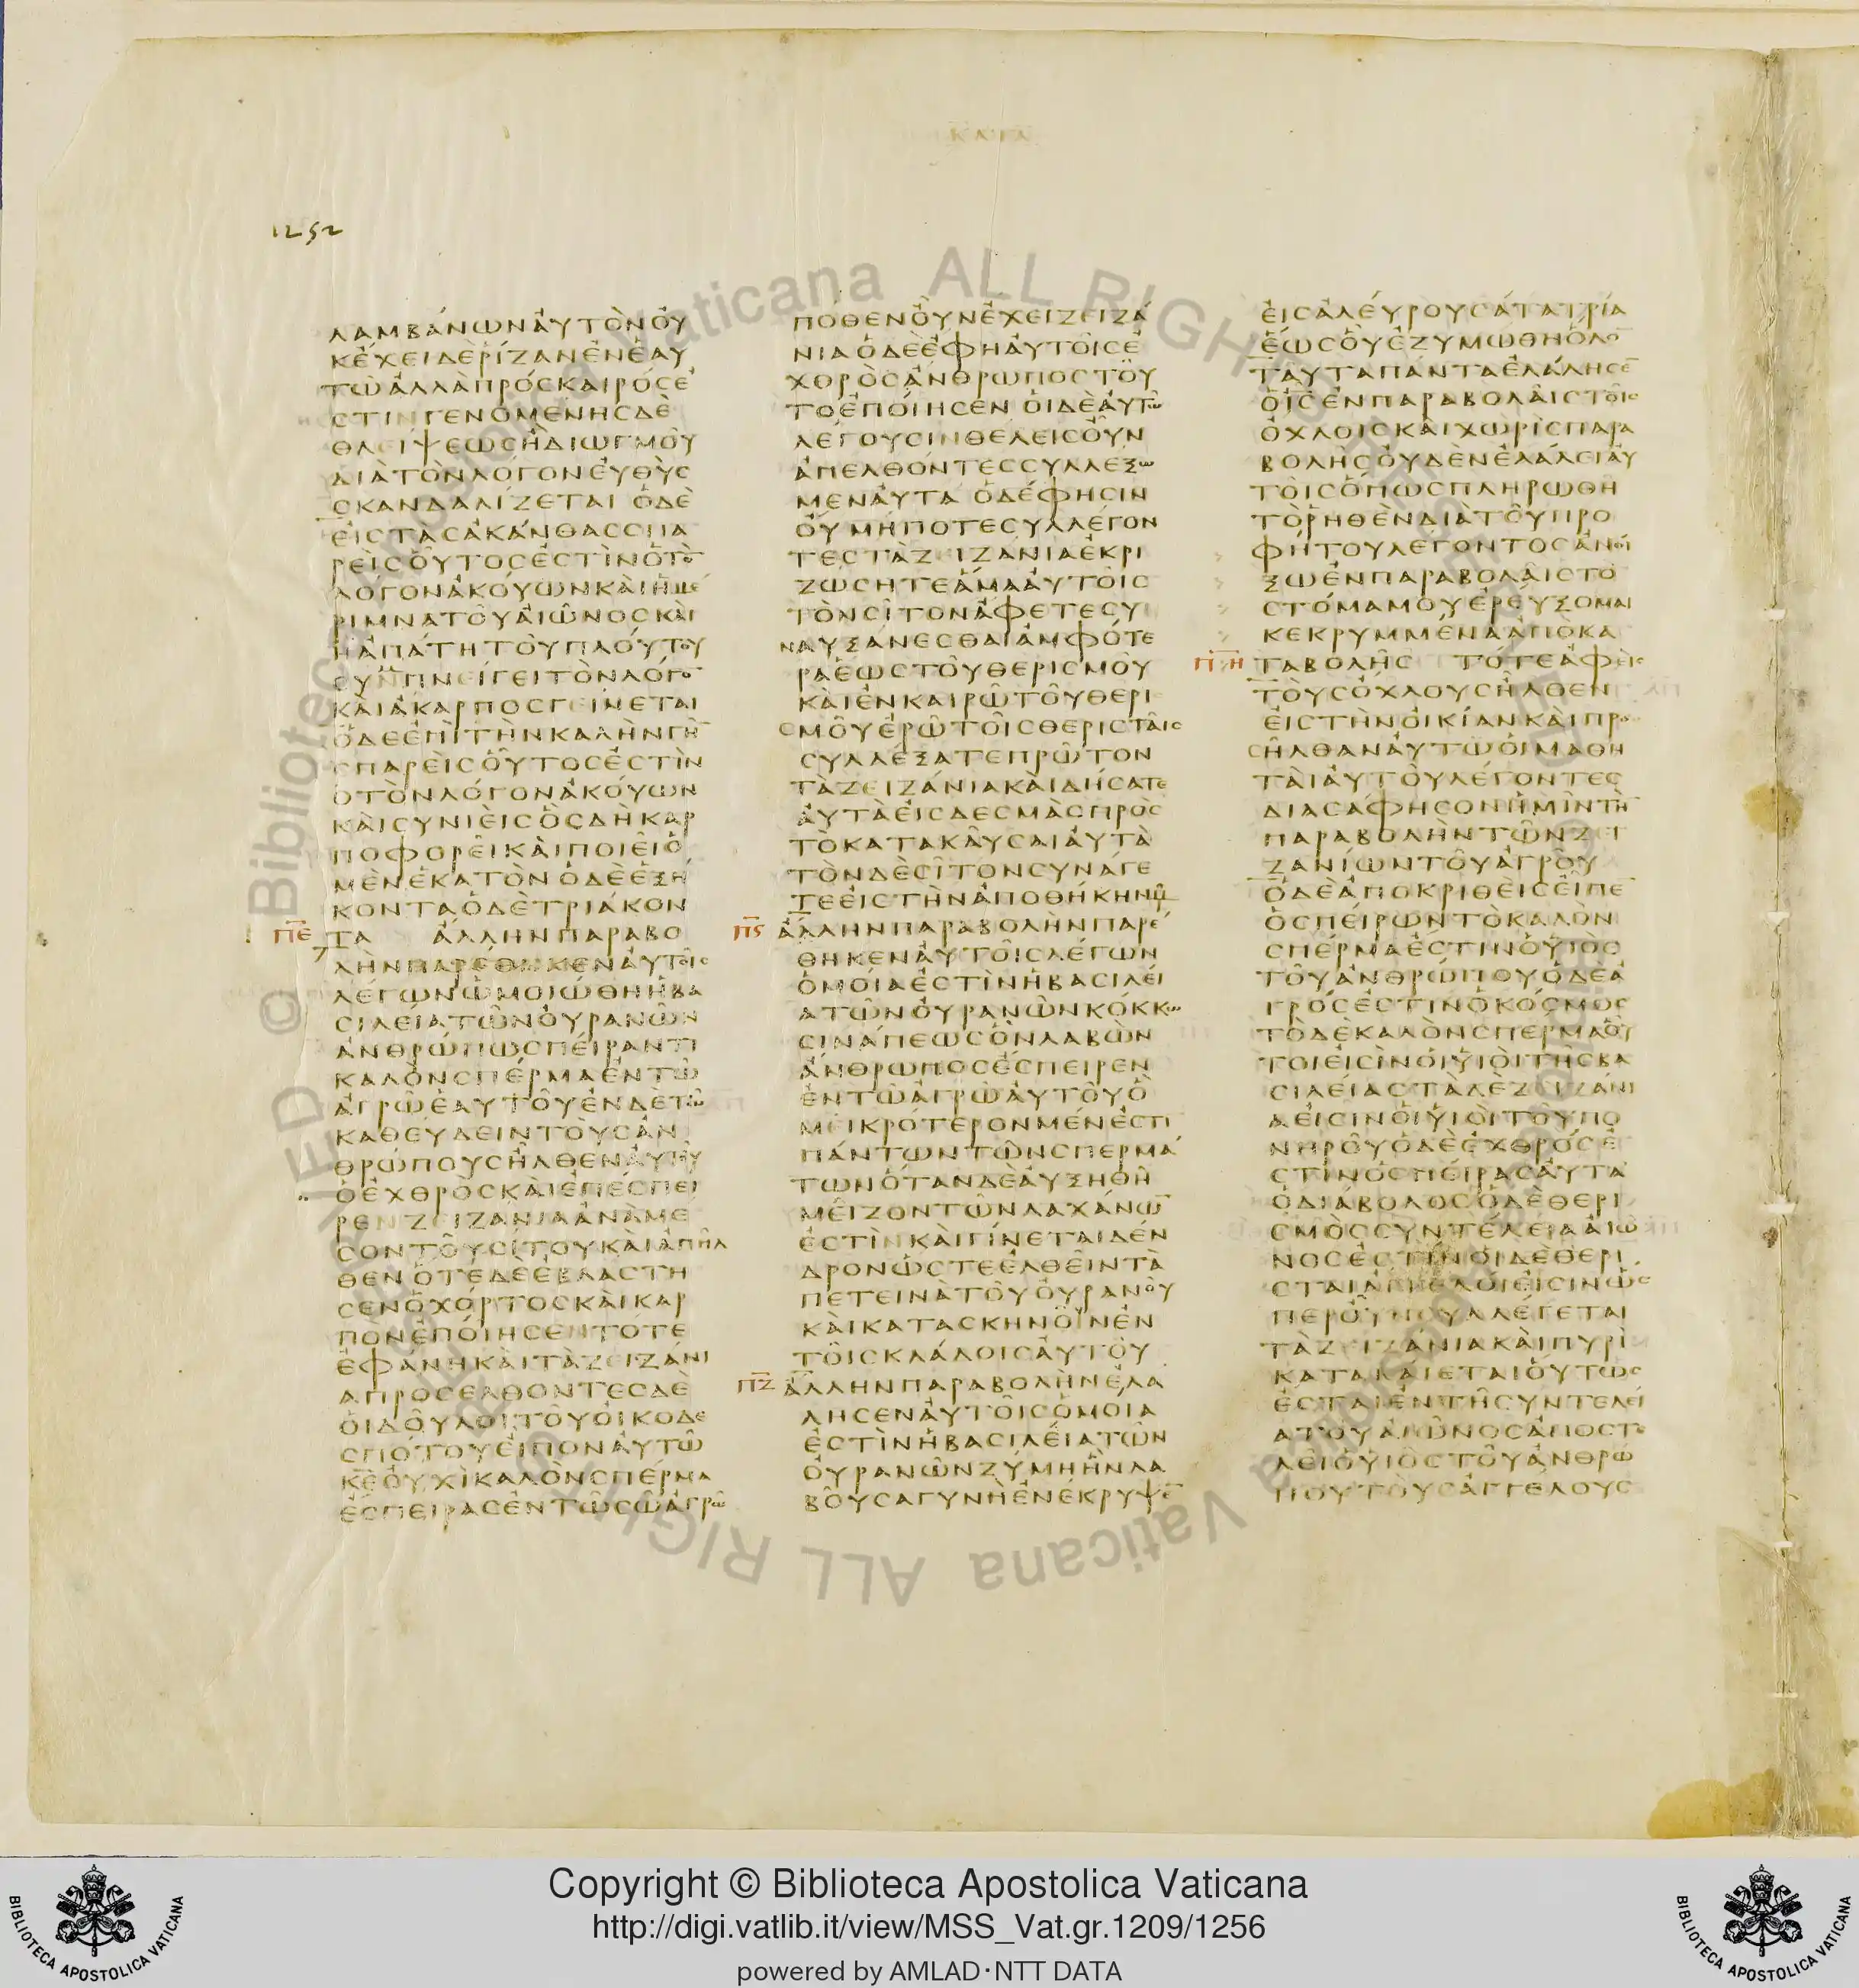 ΚΑΤΑ
1252
ΛΑΜΒΑΝΩΝΑΥΤΟΝΟΥ
ΚΕΧΕΙΔΕΡΙΖΑΝΕΝΕΑΥ
ΤΩΑΛΛΑΠΡΟΣΚΑΙΡΟΣΕ
ΣΤΙΝΓΕΝΟΜΕΝΗΣΔΕ
ΘΛΕΙΨΕΩΣΗΔΙΩΓΜΟΥ
ΔΙΑΤΟΝΛΟΓΟΝΕΥΘΥΣ
ΣΚΑΝΔΑΛΙΖΕΤΑΙ ΟΔΕ
ΕΙΣΤΑΣΑΚΑΝΘΑΣΣΠΑ
ΡΕΙΣΟΥΤΟΣΕΣΤΙΝΟΤΟ̅
ΛΟΓΟΝΑΚΟΥΩΝΚΑΙΗΜΕ
ΡΙΜΝΑΤΟΥΑΙΩΝΟΣΚΑΙ
ΗΑΠΑΤΗΤΟΥΠΛΟΥΤΟΥ
ΣΥΝΠΝΕΙΓΕΙΤΟΝΛΟΓΟ̅
ΚΑΙΑΚΑΡΠΟΣΓΕΙΝΕΤΑΙ
ΟΔΕΕΠΙΤΗΝΚΑΛΗΝΓΗ̅
ΣΠΑΡΕΙΣΟΥΤΟΣΕΣΤΙΝ
ΟΤΟΝΛΟΓΟΝΑΚΟΥΩΝ
ΚΑΙΣΥΝΙΕΙΣΟΣΔΗΚΑΡ
ΠΟΦΟΡΕΙΚΑΙΠΟΙΕΙΟ
ΜΕΝΕΚΑΤΟΝ ΟΔΕΕΞΗ
ΚΟΝΤΑΟΔΕΤΡΙΑΚΟΝ
Π̅Ε̅ ΤΑ ΑΛΛΗΝΠΑΡΑΒΟ
ΛΗΝΠΑΡΕΘΗΚΕΝΑΥΤΟΙΣ
ΛΕΓΩΝΩΜΟΙΩΘΗΗΒΑ
ΣΙΛΕΙΑΤΩΝΟΥΡΑΝΩΝ
ΑΝΘΡΩΠΩΣΠΕΙΡΑΝΤΙ
ΚΑΛΟΝΣΠΕΡΜΑΕΝΤΩ
ΑΓΡΩΕΑΥΤΟΥΕΝΔΕΤΩ
ΚΑΘΕΥΔΕΙΝΤΟΥΣΑΝ
ΘΡΩΠΟΥΣΗΛΘΕΝΑΥΤΟΥ
ΟΕΧΘΡΟΣΚΑΙΕΠΕΣΠΕΙ
ΡΕΝΖΕΙΖΑΝΙΑΑΝΑΜΕ
ΣΟΝΤΟΥΣΙΤΟΥΚΑΙΑΠΗΛ
ΘΕΝΟΤΕΔΕΕΒΛΑΣΤΗ
ΣΕΝΟΧΟΡΤΟΣΚΑΙΚΑΡ
ΠΟΝΕΠΟΙΗΣΕΝΤΟΤΕ
ΕΦΑΝΗΚΑΙΤΑΖΕΙΖΑΝΙ
ΑΠΡΟΣΕΛΘΟΝΤΕΣΔΕ
ΟΙΔΟΥΛΟΙΤΟΥΟΙΚΟΔΕ
ΣΠΟΤΟΥΕΙΠΟΝΑΥΤΩ
Κ̅Ε̅ΟΥΧΙΚΑΛΟΝΣΠΕΡΜΑ
ΕΣΠΕΙΡΑΣΕΝΤΩΣΩΑΓΡΩ
ΠΟΘΕΝΟΥΝΕΧΕΙΖΕΙΖΑ
ΝΙΑΟΔΕΕΦΗΑΥΤΟΙΣΕ
ΧΟΡΟΣΑΝΘΡΩΠΟΣΤΟΥ
ΤΟΕΠΟΙΗΣΕΝ ΟΙΔΕΑΥΤΩ
ΛΕΓΟΥΣΙΝΘΕΛΕΙΣΟΥΝ
ΑΠΕΛΘΟΝΤΕΣΣΥΛΛΕΞΩ
ΜΕΝΑΥΤΑ ΟΔΕΦΗΣΙΝ
ΟΥ ΜΗΠΟΤΕΣΥΛΛΕΓΟΝ
ΤΕΣΤΑΖΕΙΖΑΝΙΑΕΚΡΙ
ΖΩΣΗΤΕΑΜΑΑΥΤΟΙΣ
ΤΟΝΣΙΤΟΝΑΦΕΤΕΣΥ
ΝΑΥΞΑΝΕΣΘΑΙΑΜΦΟΤΕ
ΡΑΕΩΣΤΟΥΘΕΡΙΣΜΟΥ
ΚΑΙΕΝΚΑΙΡΩΤΟΥΘΕΡΙ
ΣΜΟΥΕΡΩΤΟΙΣΘΕΡΙΣΤΑΙΣ
ΣΥΛΛΕΞΑΤΕΠΡΩΤΟΝ
ΤΑΖΕΙΖΑΝΙΑΚΑΙΔΗΣΑΤΕ
ΑΥΤΑΕΙΣΔΕΣΜΑΣΠΡΟΣ
ΤΟΚΑΤΑΚΑΥΣΑΙΑΥΤΑ
ΤΟΝΔΕΣΙΤΟΝΣΥΝΑΓΕ
ΤΕΕΙΣΤΗΝΑΠΟΘΗΚΗΝΜΟΥ
Π̅Ϛ̅ ΑΛΛΗΝΠΑΡΑΒΟΛΗΝΠΑΡΕ
ΘΗΚΕΝΑΥΤΟΙΣΛΕΓΩΝ
ΟΜΟΙΑΕΣΤΙΝΗΒΑΣΙΛΕΙ
ΑΤΩΝΟΥΡΑΝΩΝΚΟΚΚΩ
ΣΙΝΑΠΕΩΣΟΝΛΑΒΩΝ
ΑΝΘΡΩΠΟΣΕΣΠΕΙΡΕΝ
ΕΝΤΩΑΓΡΩΑΥΤΟΥΟ
ΜΕΙΚΡΟΤΕΡΟΝΜΕΝΕΣΤΙ
ΠΑΝΤΩΝΤΩΝΣΠΕΡΜΑ
ΤΩΝΟΤΑΝΔΕΑΥΞΗΘΗ
ΜΕΙΖΟΝΤΩΝΛΑΧΑΝΩ̅
ΕΣΤΙΝΚΑΙΓΙΝΕΤΑΙΔΕΝ
ΔΡΟΝΩΣΤΕΕΛΘΕΙΝΤΑ
ΠΕΤΕΙΝΑΤΟΥΟΥΡΑΝΟΥ
ΚΑΙΚΑΤΑΣΚΗΝΟΙΝΕΝ
ΤΟΙΣΚΛΑΔΟΙΣΑΥΤΟΥ
Π̅Ζ̅ ΑΛΛΗΝΠΑΡΑΒΟΛΗΝΕΛΑ
ΛΗΣΕΝΑΥΤΟΙΣΟΜΟΙΑ
ΕΣΤΙΝΗΒΑΣΙΛΕΙΑΤΩΝ
ΟΥΡΑΝΩΝΖΥΜΗΗΝΛΑ
ΒΟΥΣΑΓΥΝΗΕΝΕΚΡΥΨΕ̅
ΕΙΣΑΛΕΥΡΟΥΣΑΤΑΤΡΙΑ
ΕΩΣΟΥΕΖΥΜΩΘΗΟΛΟ̅
ΤΑΥΤΑΠΑΝΤΑΕΛΑΛΗΣΕ̅
ΟΙΣΕΝΠΑΡΑΒΟΛΑΙΣΤΟΙΣ
ΟΧΛΟΙΣΚΑΙΧΩΡΙΣΠΑΡΑ
ΒΟΛΗΣΟΥΔΕΝΕΛΑΛΕΙΑΥ
ΤΟΙΣΟΠΩΣΠΛΗΡΩΘΗ
ΤΟΡΗΘΕΝΔΙΑΤΟΥΠΡΟ
ΦΗΤΟΥΛΕΓΟΝΤΟΣΑΝΟΙ
ΞΩΕΝΠΑΡΑΒΟΛΑΙΣΤΟ
ΣΤΟΜΑΜΟΥΕΡΕΥΞΟΜΑΙ
ΚΕΚΡΥΜΜΕΝΑΑΠΟΚΑ
Π̅Η̅ ΤΑΒΟΛΗΣ ΤΟΤΕΑΦΕΙΣ
ΤΟΥΣΟΧΛΟΥΣΗΛΘΕΝ
ΕΙΣΤΗΝΟΙΚΙΑΝΚΑΙΠΡΟ
ΣΗΛΘΑΝΑΥΤΩΟΙΜΑΘΗ
ΤΑΙΑΥΤΟΥΛΕΓΟΝΤΕΣ
ΔΙΑΣΑΦΗΣΟΝΗΜΙΝΤΗ̅
ΠΑΡΑΒΟΛΗΝΤΩΝΖΕΙ
ΖΑΝΙΩΝΤΟΥΑΓΡΟΥ
ΟΔΕΑΠΟΚΡΙΘΕΙΣΕΙΠΕ̅
ΟΣΠΕΙΡΩΝΤΟΚΑΛΟΝ
ΣΠΕΡΜΑΕΣΤΙΝΟΥΙΟΣ
ΤΟΥΑΝΘΡΩΠΟΥΟΔΕΑ
ΓΡΟΣΕΣΤΙΝΟΚΟΣΜΟΣ
ΤΟΔΕΚΑΛΟΝΣΠΕΡΜΑΟΥ
ΤΟΙΕΙΣΙΝΟΙΥΙΟΙΤΗΣΒΑ
ΣΙΛΕΙΑΣΤΑΔΕΖΕΙΖΑΝΙ
ΑΕΙΣΙΝΟΙΥΙΟΙΤΟΥΠΟ
ΝΗΡΟΥΟΔΕΕΧΘΡΟΣΕ
ΣΤΙΝΟΣΠΕΙΡΑΣΑΥΤΑ
ΟΔΙΑΒΟΛΟΣΟΔΕΘΕΡΙ
ΣΜΟΣΣΥΝΤΕΛΕΙΑΑΙΩ
ΝΟΣΕΣΤΙΝΟΙΔΕΘΕΡΙ
ΣΤΑΙΑΓΓΕΛΟΙΕΙΣΙΝΩΣ
ΠΕΡΟΥΝΣΥΛΛΕΓΕΤΑΙ
ΤΑΖΕΙΖΑΝΙΑΚΑΙΠΥΡΙ
ΚΑΤΑΚΑΙΕΤΑΙΟΥΤΩΣ
ΕΣΤΑΙΕΝΤΗΣΥΝΤΕΛΕΙ
ΑΤΟΥΑΙΩΝΟΣΑΠΟΣΤΕ
ΛΕΙΟΥΙΟΣΤΟΥΑΝΘΡΩ
ΠΟΥΤΟΥΣΑΓΓΕΛΟΥΣ
© Biblioteca Vaticana ALL RIGHTS RESERVED
Copyright © Biblioteca Apostolica Vaticana
http://digi.vatlib.it/view/MSS_Vat.gr.1209/1256
powered by AMLAD·NTT DATA
BIBLIOTECA APOSTOLICA VATICANA
BIBLIOTECA APOSTOLICA VATICANA